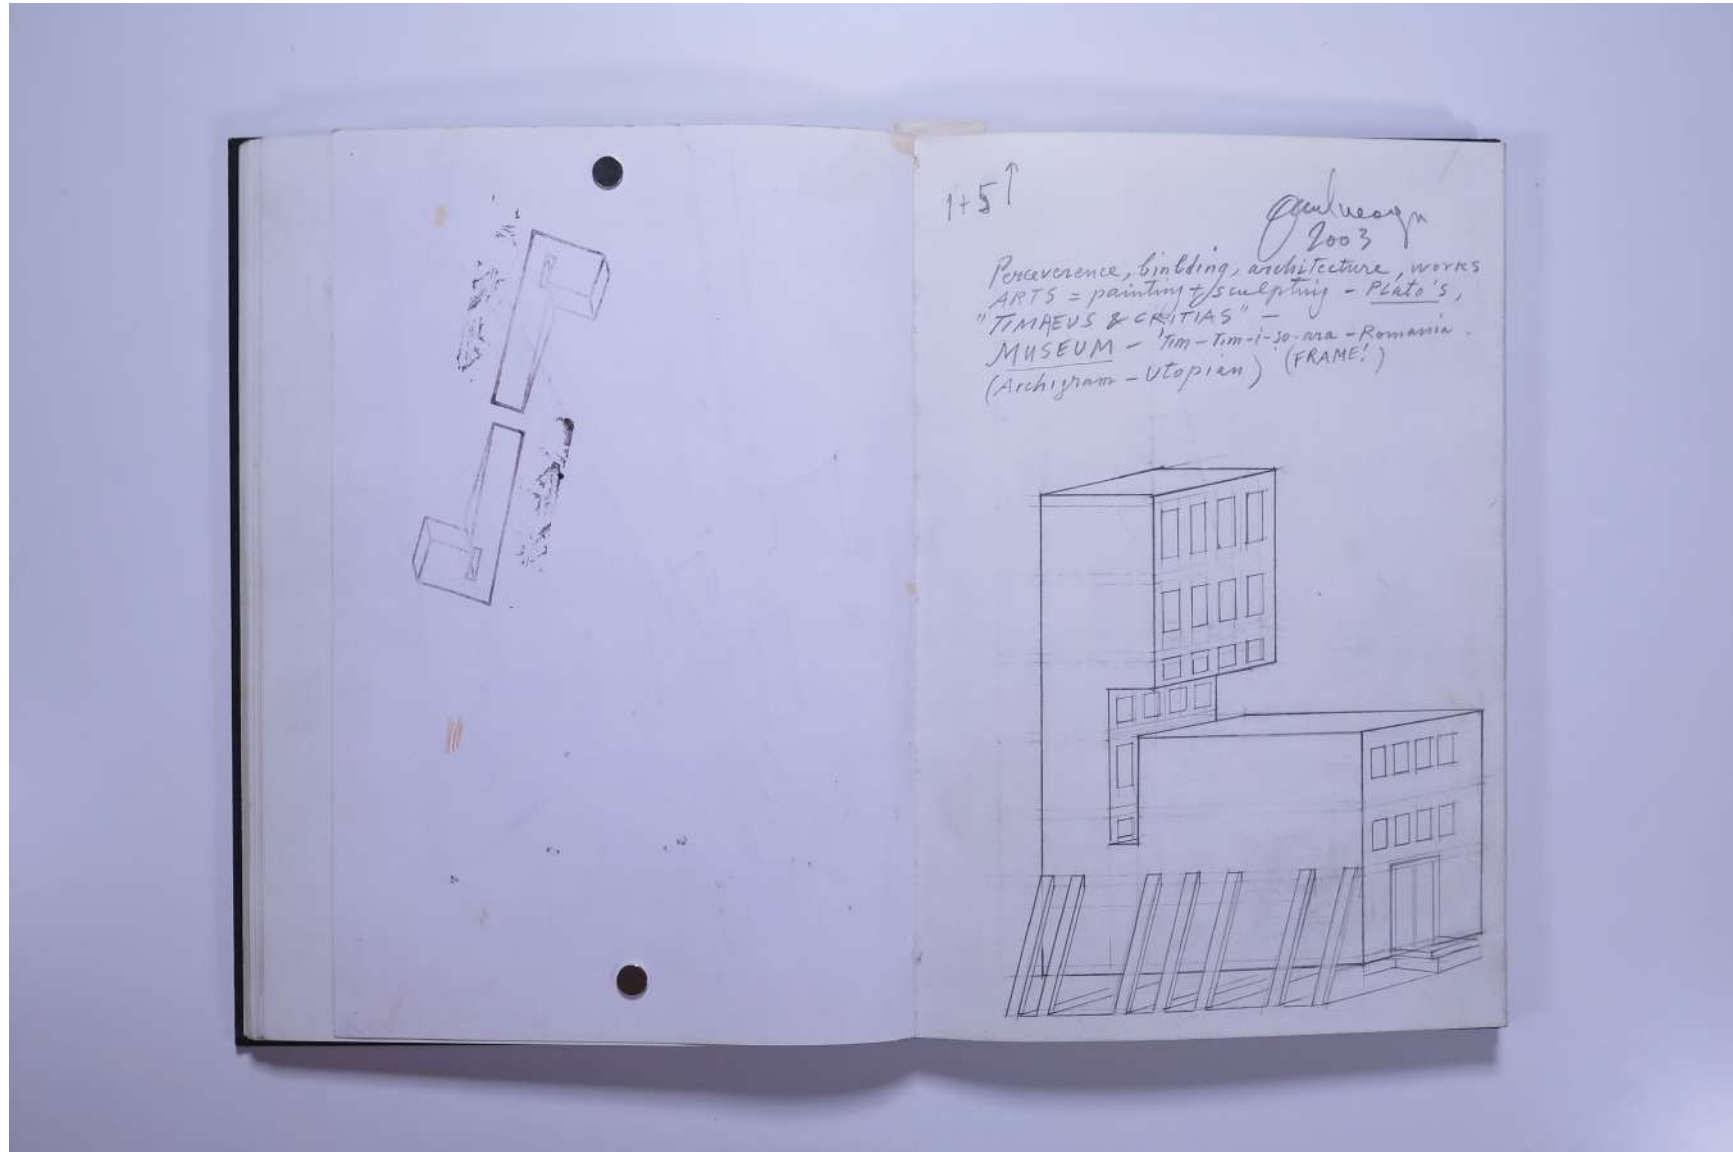 1+5↑
2003
Perceverence, binlding, architecture, works
ARTS = painting + sculpting - Plato's,
"TIMAEUS & CRITIAS" -
MUSEUM - 'Tim-Tim-i-so-ara - Romania.
(Archigram - Utopian) (FRAME!)